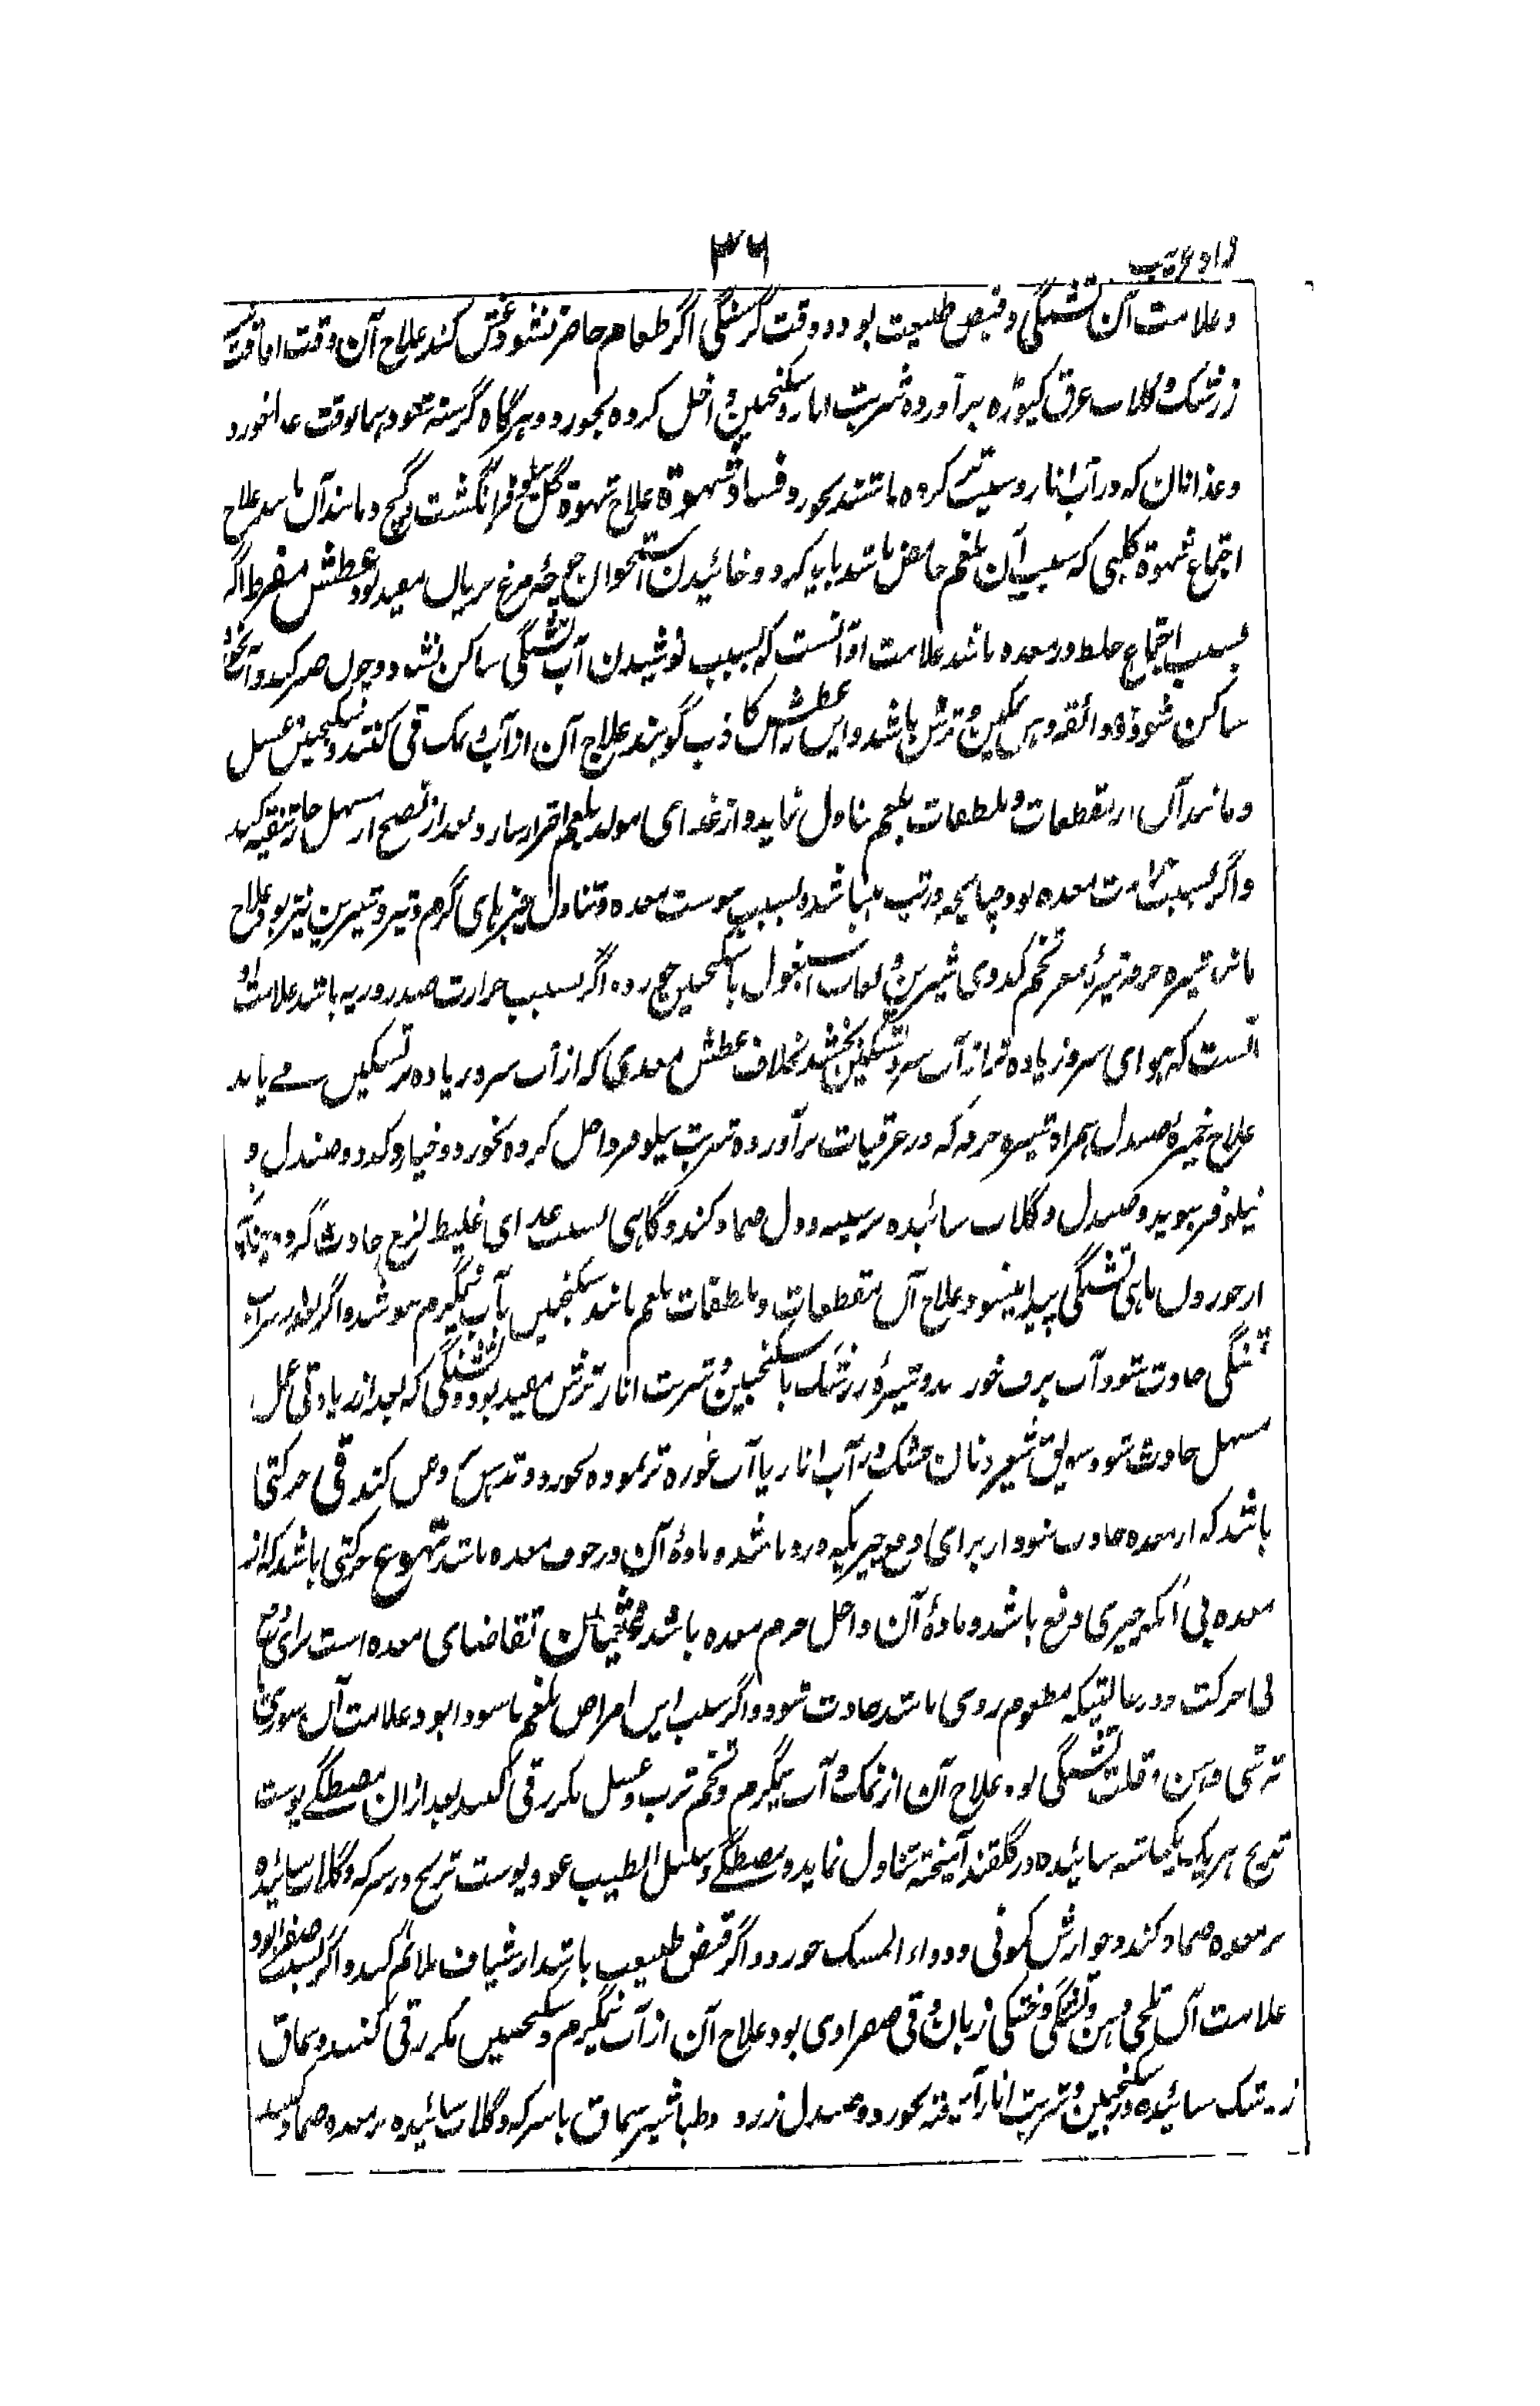 زاد غریب
۳۶
و علامت آن تشنگی و قبض طبیعت بود و وقت گرسنگی اگر طعام حاضر نشود غش کند علاج آن وقت افاقت
زرشک و گلاب عرق کیوڑه برآورده شربت انار و سکنجبین داخل کرده بخورد و هرگاه گرسنه شود همانوقت غذا خورد
و غذا نان که در آب انار و سیب تر کرده باشند بخورد فساد شهوة علاج شهوة گل و انگشت و گچ و مانند آن علاج
اجتماع شهوة کلبی که سبب آن بلغم حامض باشد باید کرد و خائیدن استخوان چوچهٔ مرغ بریان مفید بود عطش مفرط اگر
بسبب اجتماع خلط در معده باشد علامت او آنست که بسبب نوشیدن آب تشنگی ساکن نشود و چون صبر کند و آب نخورد
ساکن شود و ذائقه دهن نمکین و ترش باشد و این را عطش کاذب گویند علاج آن از آب نمک قی کنند و سکنجبین عسل
و مانند آن از مقطعات و ملطفات بلغم تناول نماید و از غذای مولد بلغم احتراز سازد و بعد از نضج از مسهل حار تنقیه کند
و اگر بسبب معده بود چنانچه در تپ باشد و بسبب یبوست معده و تناول چیزهای گرم و تیز و شیرین نیز بود علاج
آن شیره خرفه شیرهٔ مغز تخم کدوی شیرین و لعاب اسبغول با سکنجبین خورده اگر بسبب حرارت صدر و ریه باشد علامت او
آنست که هوای سرد زیاده تر از آب سرد تسکین بخشد بخلاف عطش معدی که از آب سرد زیاده تر تسکین مے یابد
علاج خمیرهٔ صندل همراه شیره خرفه که در عرقیات برآورده شربت نیلوفر داخل کرده بخورد و خیار و کدو و صندل و
نیلوفر ببوید و صندل و گلاب سائیده بر سینه و دل ضماد کند و گاهی بسبب غذای غلیظ لزج حادث گردد چنانچه
از خوردن ماهی تشنگی پیدا میشود علاج آن مقطعات و ملطفات بلغم مانند سکنجبین بآب نیمگرم بنوشد و اگر بعد شراب
تشنگی حادث شود آب برف خورد و شیرهٔ زرشک با سکنجبین و شربت انار ترش مفید بود و تشنگی که بعد از زیادتی عمل
مسهل حادث شود سویق شعیر و نان خشک در آب انار یا آب غوره تر نموده بخورد و تدهین کنند قی حرکتی
باشد که از معده حادث شود از برای دفع چیزیکه درو باشد و مادهٔ آن در جوف معده باشد تهوع حرکتی باشد که از
معده بی آنکه چیزی دفع باشد و مادهٔ آن داخل جرم معده باشد غثیان تقاضای معده است برای دفع
بی حرکت و در حالتیکه مطعوم ردی باشد حادث شود و اگر سبب این امراض بلغم یا سودا بود علامت آن
ترشی دهن و قلت تشنگی بود علاج آن از نمک و آب نیمگرم و تخم ترب و عسل مکرر قی کنند بعد ازان مصطگے پوست
ترنج هر یک یکماشه سائیده در گلقند آمیخته تناول نماید و مصطگے و سنبل الطیب عود و پوست ترنج در سرکه و گلاب سائیده
بر معده ضماد کند و جوارش کمونی و دواء المسک خورد و اگر قبض طبیعت باشد از شیاف ملائم کند و اگر بسبب صفرا بود
علامت آن تلخی دهن و تشنگی و خشکی زبان و قی صفراوی بود علاج آن از آب نیمگرم و سکنجبین مکرر قی کنند و سماق
زرشک سائیده در سکنجبین و شربت انار آمیخته بخورد و صندل زرد و طباشیر سماق با سرکه و گلاب سائیده بر معده ضماد کنند